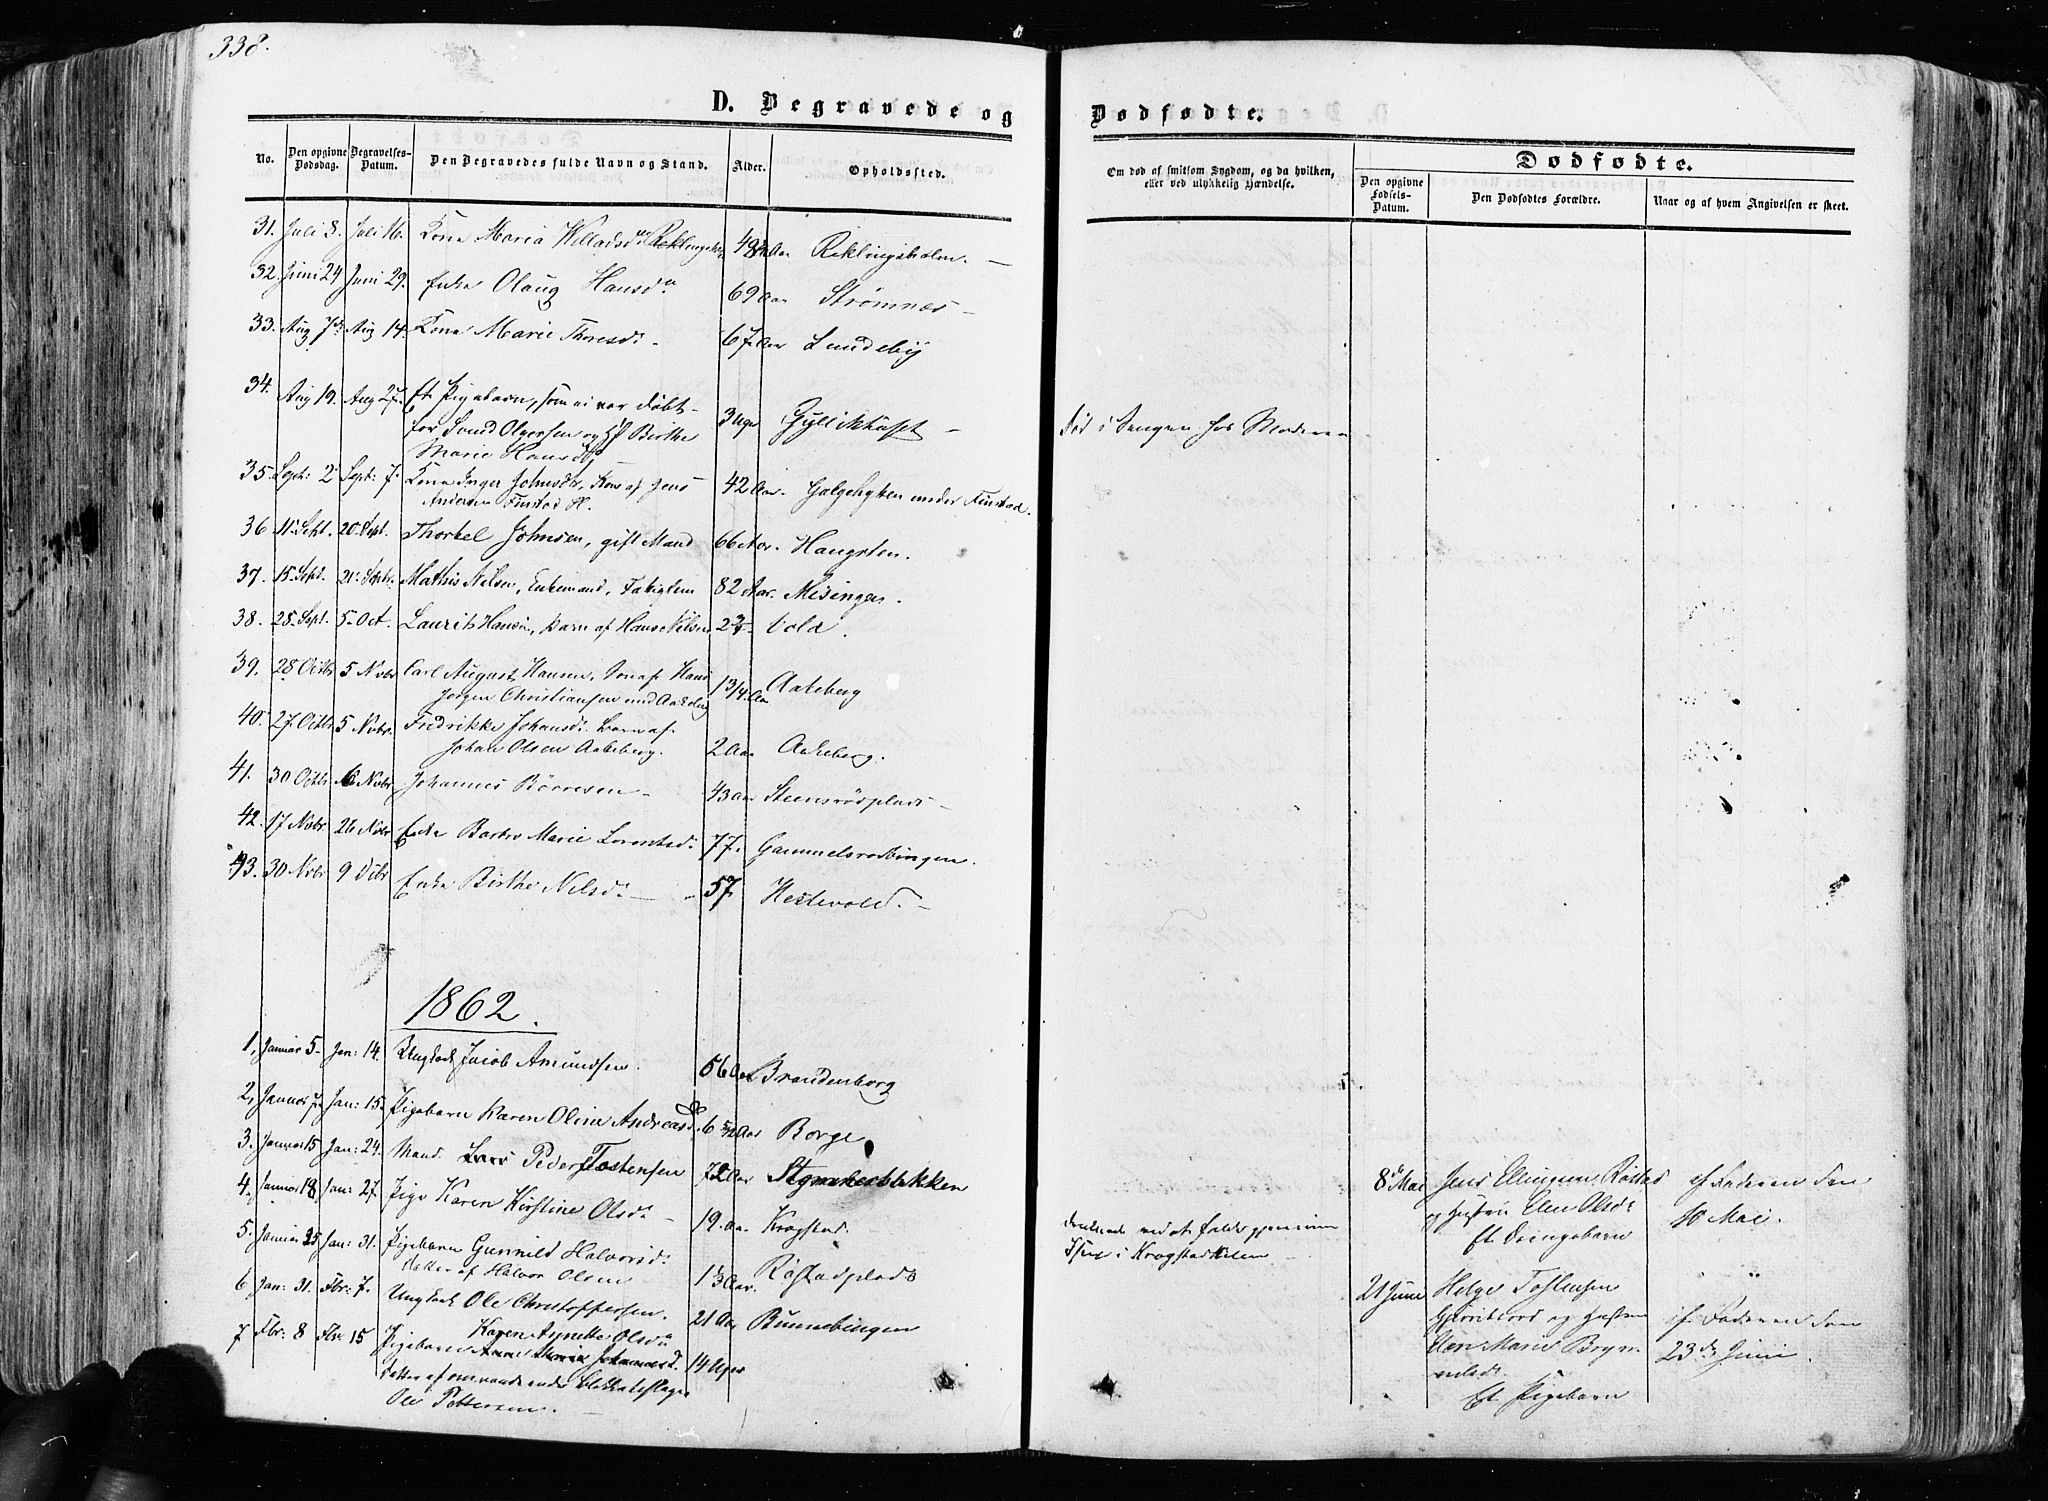 338.
D. Begravede og
No.
Den opgivne Dødsdag.
Begravelses-Datum.
Den Begravedes fulde Navn og Stand.
Alder.
Opholdssted.
31. Juli 8. Juli 16. Kone Maria Aar Reklingsholm.
32. Juni 24 Juni 29. Enke Olaug Hansd. 69 Aar Strømnes
33. Aug 7de Aug 14. Kone Marie Thoresd. 67 Aar Lundeby
34. Aug 19. Aug 27. Et Pigebarn, som ei var døbt
for Svend Olgersen og Birthe 3 Uger
Marie Hansd.
35. Sept: 2 Sept: 7. Kone Inger Johnsdtr, Kone af Jens 42 Aar. Galgehytten under Finstad.
Andersen Finstad
36 11. Sept. 20 Sept. Thorkel Johnsen, gift Mand 66 Aar. Haugsten.
37. 15. Sept. 21. Sept. Mathis Nilsen, Enkemand, Fattiglem 82 Aar. Misingen.
38. 28. Sept. 5. Oct. Laurits Hansen, Barn af Hans Nilsen 2 3/4 Vold.
39. 28 Octbr 5 Novbr Carl August Hansen, Søn af Hans
Jørgen Christiansen und Aakeberg 1 3/4 Aar Aakeberg
40. 27. Octbr 5 Novbr. Fredrikke Johansd. Barn af
Johan Olsen Aakeberg. 2 Aar Aakeberg.
41. 30 Octbr 6 Novbr Johannes Börresen 43 Aar Steensrödplads
42. 17 Novbr 26 Novbr Enke Barbro Marie Lorentsd. 77. Gammelsrødbingen.
43. 30 Novbr 9 Debr Enke Birthe Nilsd. 57 Hestevold.
1862.
1, Januar 5. Jan: 14. Ungkarl Jacob Amundsen. 56 Aar Brandenborg
2, Januar 7. Jan: 15. Pigebarn Karen Oline Andreasd. 6 5/12 Aar Borge
3. Januar 15 Jan: 24. Mand Peder Tostensen 72 Aar
4, Januar 18 Jan: 27. Pige Karen Kirstine Olsd. 19. Aar Krogstad.
5. Januar 25 Jan: 31. Pigebarn Gunnild Halvorsd.
Datter af Halvor Olsen 1 1/3 Aar. Röstadplads
6 Jan: 31. Fbr: 7. Ungkarl Ole Christoffersen. 21 Aar Bunnebingen
7 Fbr: 8 Fbr: 15 Karen Agnethe Olsd.
Pigebarn Anne Maria Johannesd. 14 Uger
Datter af omvandrende Blikkenslager
Ole Pettersen.
Dødfødte.
Om død af smitsom Sygdom, og da hvilken, eller ved ulykkelig Hændelse.
Dødfødte.
Den opgivne Fødsels-Datum.
Den Dødfødtes Forældre.
Naar og af hvem Angivelsen er skeet.
Död i Sengen hos Moderen
druknede ved at falde gjennem
Isen i Krogstadkilen
8de Mai Jens Ellingsen Röstad af Faderen den
og Hustru Elen Olsd. 10 Mai.
Et Drengebarn
21 Juni Helge Tostensen
og Hustru af Faderen den
Elen Marie 23de Juni.
Et Pigebarn